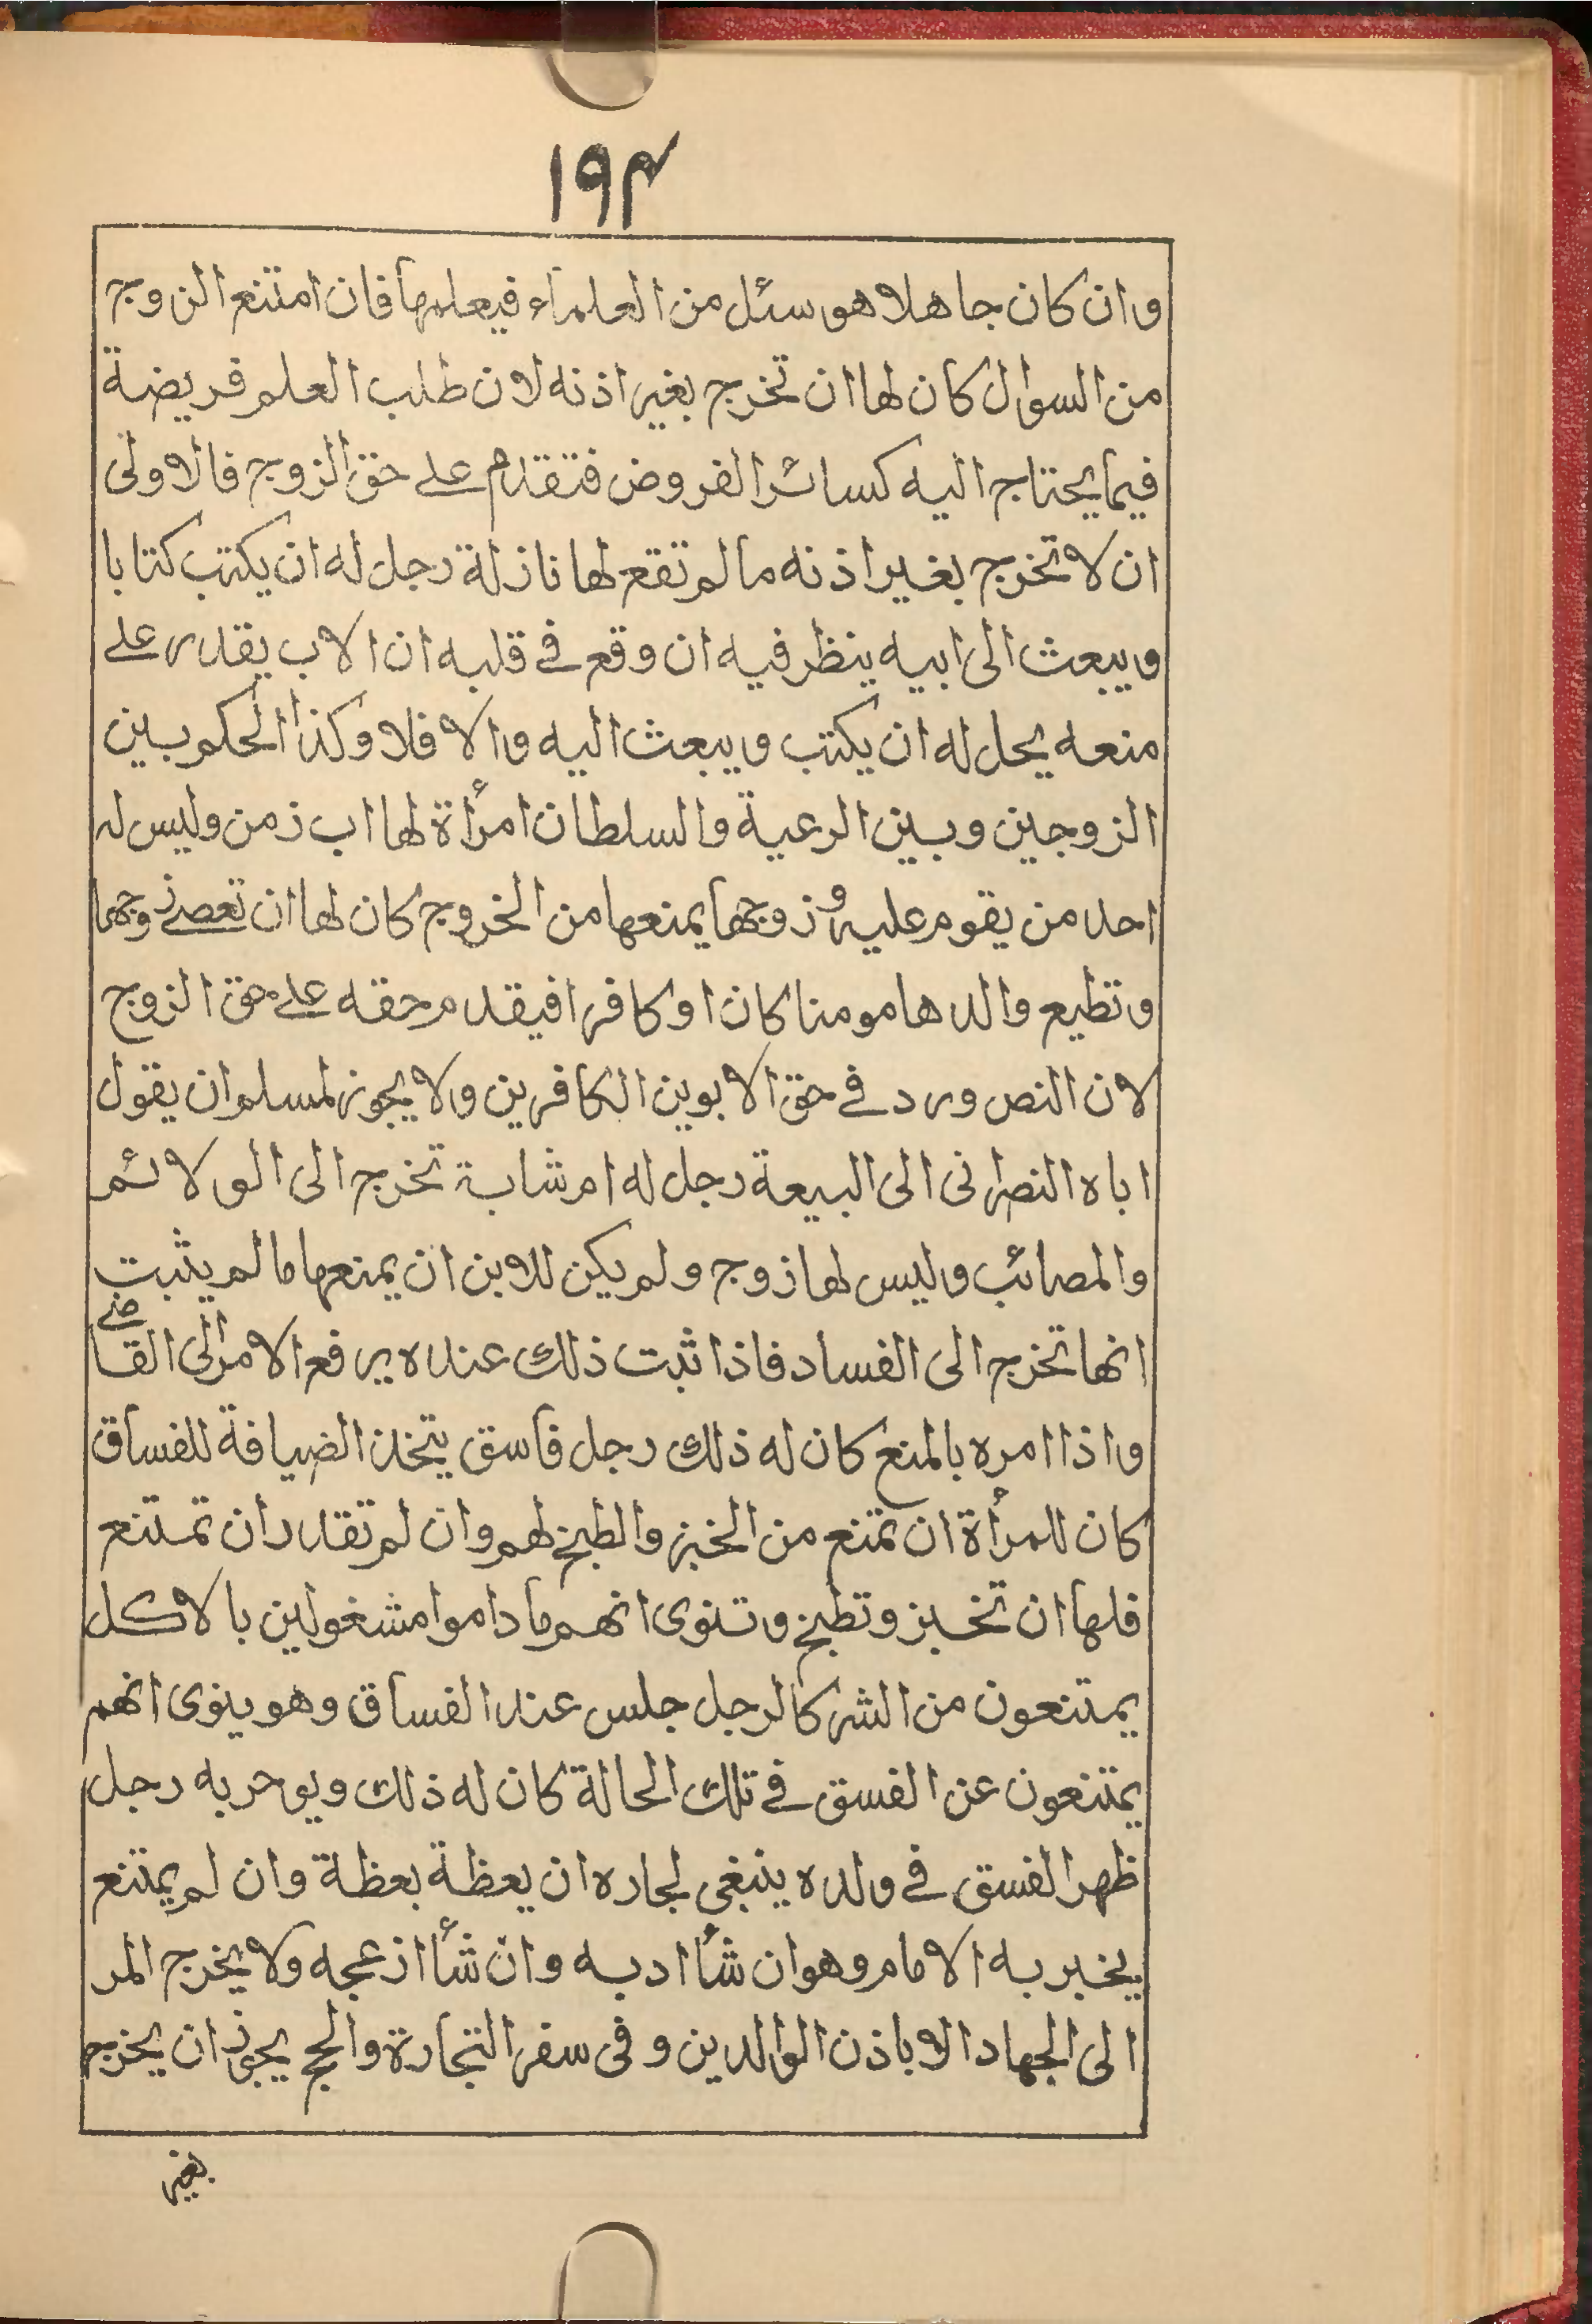 ۱۹۴
وان كان جاهلا هو سئل من العلماء فيعلمها فان امتنع الزوج
من السوال كان لها ان تخرج بغير اذنه لان طلب العلم فريضة
فيما يحتاج اليه كسائر الفروض فتقدم على حق الزوج فالاولى
ان لا تخرج بغير اذنه مالم تقع لها نازلة رجل له ان يكتب كتابا
ويبعث الى ابيه ينظر فيه ان وقع في قلبه ان الاب يقدر على
منعه يحل له ان يكتب ويبعث اليه والا فلا وكذا الحكم بين
الزوجين وبين الرعية والسلطان امرأة لها اب زمن وليس له
احد من يقوم عليه و زوجها يمنعها من الخروج كان لها ان تعصے زوجها
وتطيع والدها مومنا كان او كافرا فيقدم حقه على حق الزوج
لان النص ورد في حق الابوين الكافرين ولا يجوز لمسلم ان يقول
اباه النصرانى الى البيعة رجل له ام شابة تخرج الى الولائم
والمصائب وليس لها زوج ولم يكن للابن ان يمنعها مالم يثبت
انها تخرج الى الفساد فاذا ثبت ذلك عنده يرفع الامر الى القاضے
واذا امره بالمنع كان له ذلك رجل فاسق يتخذ الضيافة للفساق
كان للمرأة ان تمتنع من الخبز والطبخ لهم وان لم تقدر ان تمتنع
فلها ان تخبز وتطبخ وتنوى انهم ما داموا مشغولين بالاكل
يمتنعون من الشر كالرجل جلس عند الفساق وهو ينوى انهم
يمتنعون عن الفسق في تلك الحالة كان له ذلك ويوحر به رجل
ظهر الفسق في ولده ينبغي لجاره ان يعظة بعظة وان لم يمتنع
يخبر به الامام وهو ان شأ ادبه وان شأ ازعجه ولا يخرج المر
الى الجهاد الا باذن الوالدين وفى سفر التجارة والحج يجوز ان يخرج
بغير